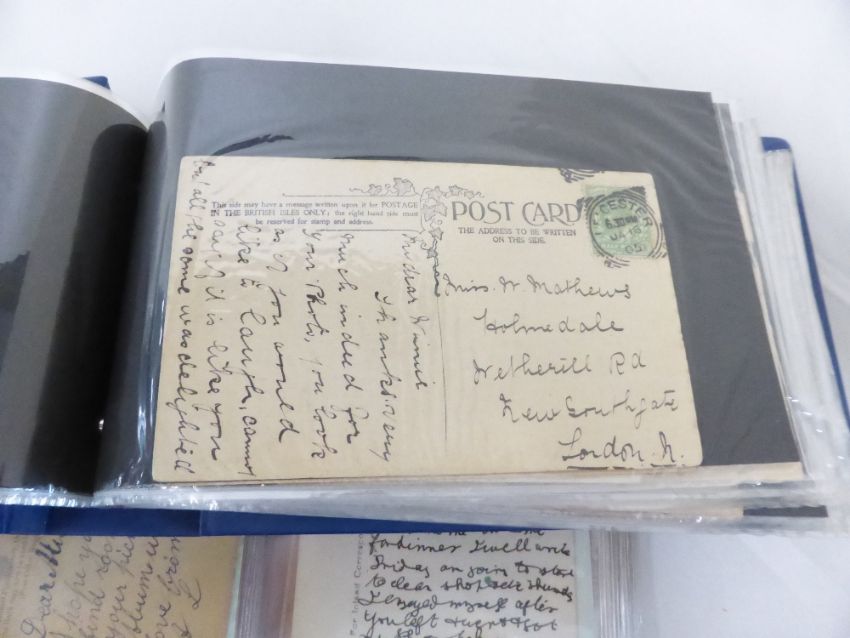 This side may have a message written upon it for POSTAGE
IN THE BRITISH ISLES ONLY; the right hand side must
be reserved for stamp and address.
POST CARD
THE ADDRESS TO BE WRITTEN
ON THIS SIDE.
LEICESTER
6.30 PM
JA 16
05
Miss. W. Mathews
Holmedale
Netherill Rd
New Southgate
London. N.
My dear Winnie
Thanks very
much indeed for
your Photo, you look
as if you would
like to laugh, cannot
say it is like you
but all the same was delighted
Dear
hope you
for dinner I well write
Friday am join to store
to clear shop
I enjoyed myself after
you left
For Inland